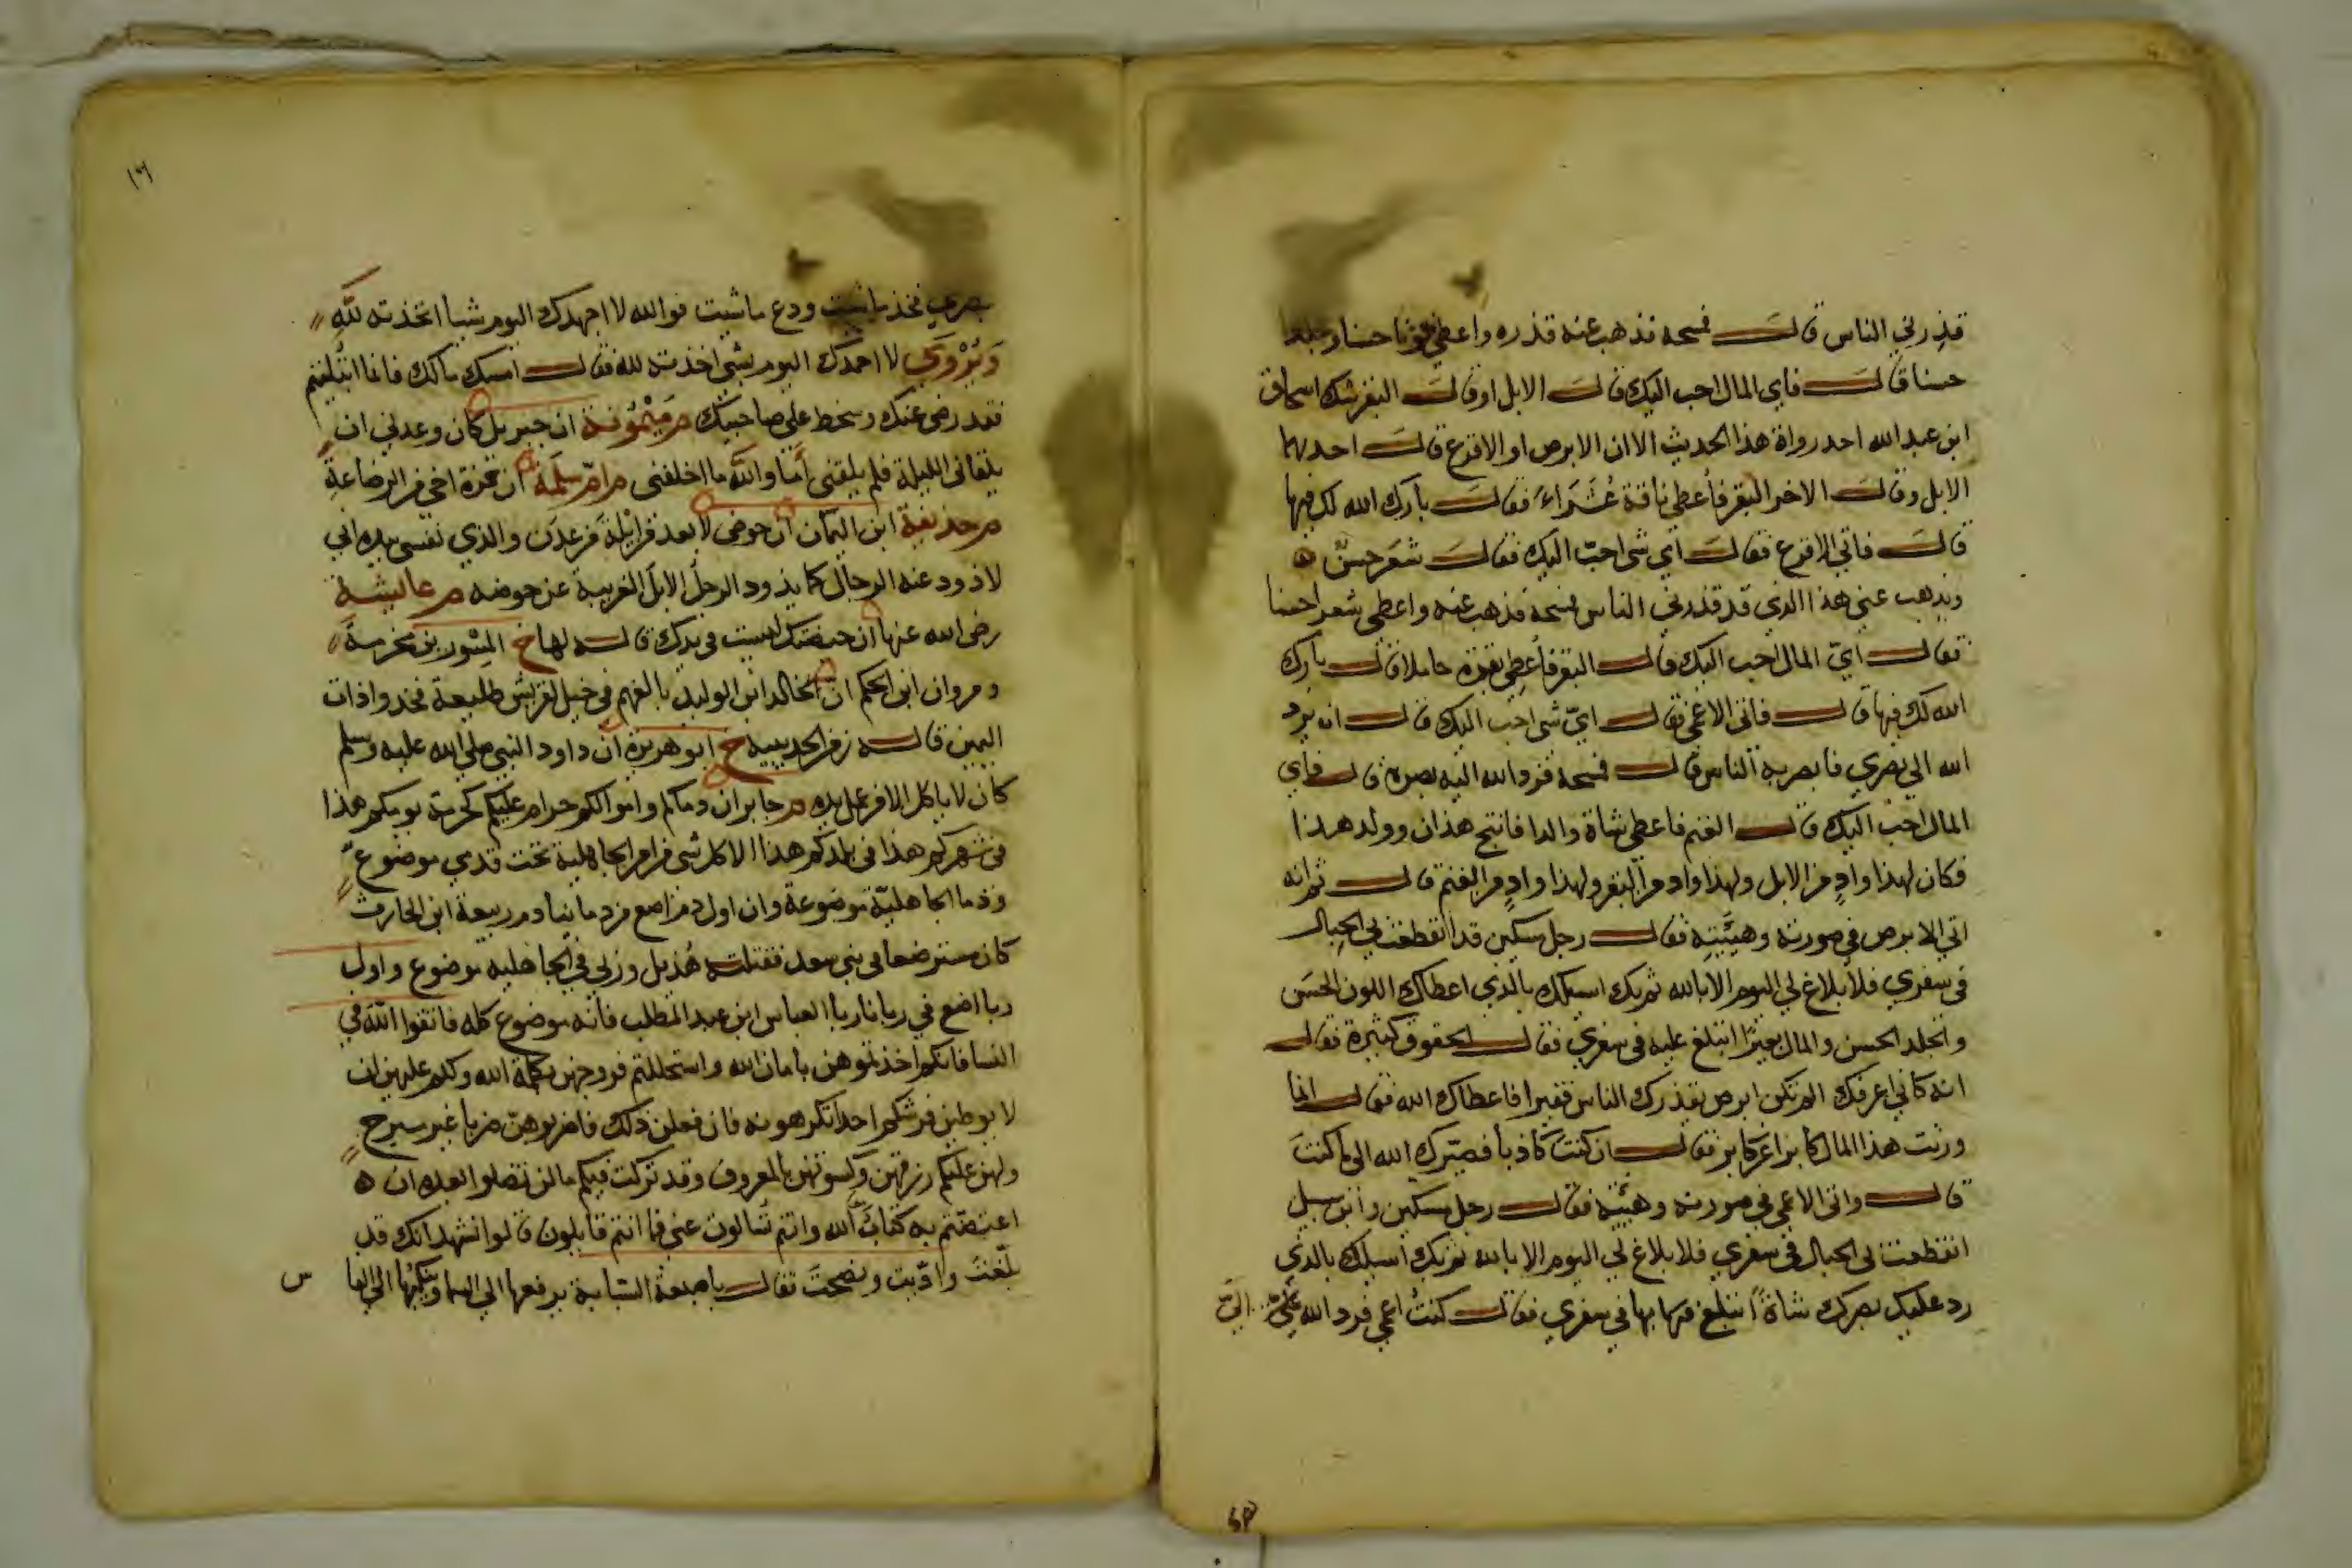 قذرني الناس قال فمسحه فذهب عنه قذره واعطي لونا حسنا وجلدا
حسنا قال فاي المال احب اليك قال الابل او قال البقر شك اسحاق
ابن عبد الله احد رواة هذا الحديث الا ان الابرص او الاقرع قال احدهما
الابل وقال الاخر البقر فأعطي ناقة عُشَرَاءَ فقال بارك الله لك فيها
قال فاتي الاقرع فقال اي شي احبّ اليك فقال شَعَر حسنٌ ه
ويذهب عني هذا الذي قد قذرني الناس فمسحه فذهب عنه واعطي شعرا حسنا
فقال ايّ المال احب اليك قال البقر فأعطي بقرة حاملا قال بارك
الله لك فيها قال فاتى الاعمى فقال ايّ شي احب اليك قال ان يرد
الله الي بصري فابصر به الناس قال فمسحه فرد الله اليه بصره قال فاي
المال احب اليك قال الغنم فاعطي شاة والدا فانتج هذان وولد هذا
فكان لهذا وادٍ من الابل ولهذا واد من البقر ولهذا وادٍ من الغنم قال ثم انه
اتي الابرص في صورته وهيئتِه فقال رجل مسكين قد انقطعت بي الحبال
في سفري فلا بلاغ لي اليوم الا بالله ثم بك اسيلك بالذي اعطاك اللون الحسَن
والجلد الحسن والمال بعيرًا اتبلغ عليه في سفري فقال الحقوق كثيرة فقال
انه كاني اعرفك الم تكن ابرص يقذرك الناس فقيرا فاعطاك الله فقال انما
ورثت هذا المال كابرا عن كابر فقال ان كنت كاذبا فصيّرك الله الى ما كنتَ
قال واتى الاعمى في صورته وهيئته فقال رجل مسكين وابن سبيل
انقطعت بي الحبال في سفري فلا بلاغ لي اليوم الا بالله ثم بك اسيلك بالذي
رد عليك بصرك شاةً اتبلغ بها في سفري فقال كنتُ اعمى فرد الله عليّ اليّ
١٦
بصري فخذ ما شيت ودع ما شيت فوالله لا اجهدك اليوم شيا اتخذته للهِ
وَيُرْوَى لا احمدك اليوم بشي اخذته لله فقال امسك مالك فانما ابتُليتم
فقد رضي عنك وسخط على صاحبيك م مَيْمُونة ان جبريل كان وعدني ان
يلقاني الليلة فلم يلقني أمَا والله ما اخلفني م امّ سلَمة ان حمزة اخي من الرضاعةِ
م حذيفة ابن اليمان ان حوضي لا بعد من ايْلة من عدَن والذي نفسي بيده اني
لاذود عنه الرجال كما يذود الرجلُ الابلَ الغريبة عن حوضه م عايشة
رضي الله عنها ان حيضتك ليست في يدك قاله لها خ المِسْور بن مخرمة
ومروان ابن الحكم ان خالد ابن الوليد بالغميم في خيل لقريش طليعة فخذوا ذات
اليمين قاله زمن الحديبيه خ ابو هريرة ان داود النبي صلى الله عليه وسلم
كان لا ياكل الا من عمل يده م جابر ان دماكم واموالكم حرام عليكم كحرمة يومكم هذا
في شهركم هذا في بلدكم هذا الا كل شي من امر الجاهلية تحت قدمي موضوع
ودما الجاهليّة موضوعة وان اول دم اضع من دماينا دم ربيعة ابن الحارث
كان مسترضعا في بني سعد فقتلته هُذيل وربى في الجاهليه موضوع واول
ربا اضع في ربانا ربا العباس ابن عبد المطلب فانه موضوع كله فاتقوا اللهَ في
النسا فانكم اخذتموهن بامان الله واستحللتم فروجهن بكلمة الله ولكم عليهن ان
لا يوطين فرشكم احدا تكرهونه فان فعلن ذلك فاضربوهنّ ضربا غير مبرح
ولهن عليكم رزقهن وكسوتهن بالمعروف وقد تركت فيكم ما لن تضلوا بعده ان ه
اعتصمتم به كتابَ الله وانتم تُسالون عني فما انتم قايلون قالوا نشهد انك قد
بلّغتَ وادّيت ونصحتَ فقال باصبعه السّبابة يرفعها الى السما وينكبها الى النا س